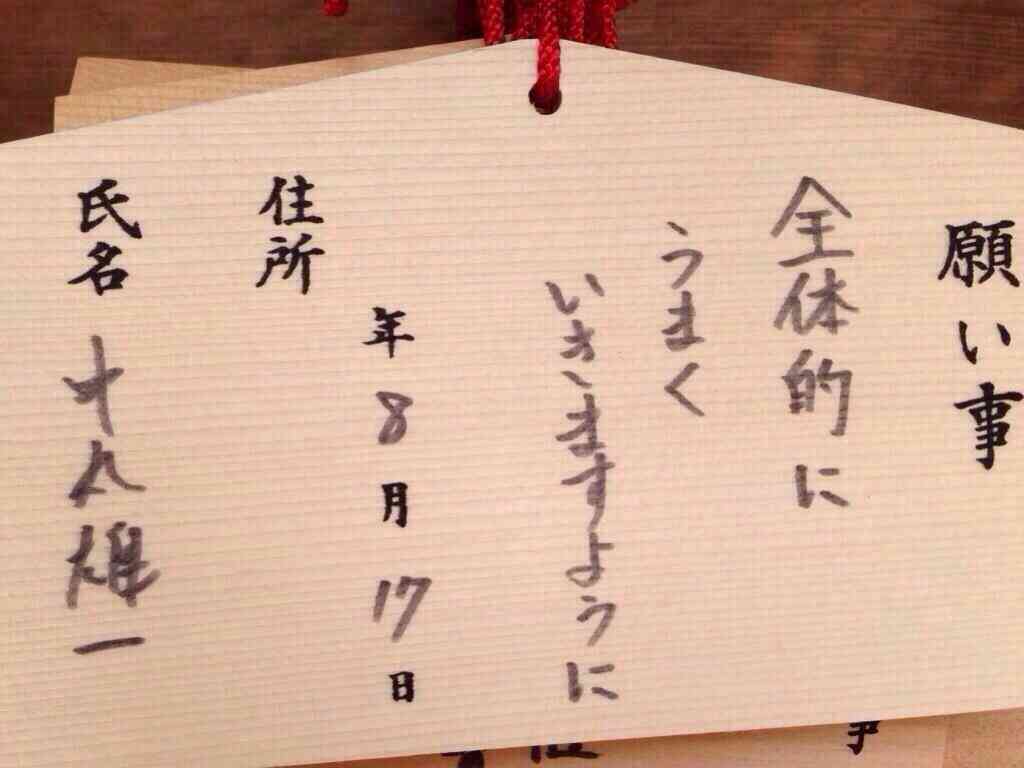 願い事
全体的に
うまく
いきますように
年 8 月 17 日
住所
氏名 雄一
事